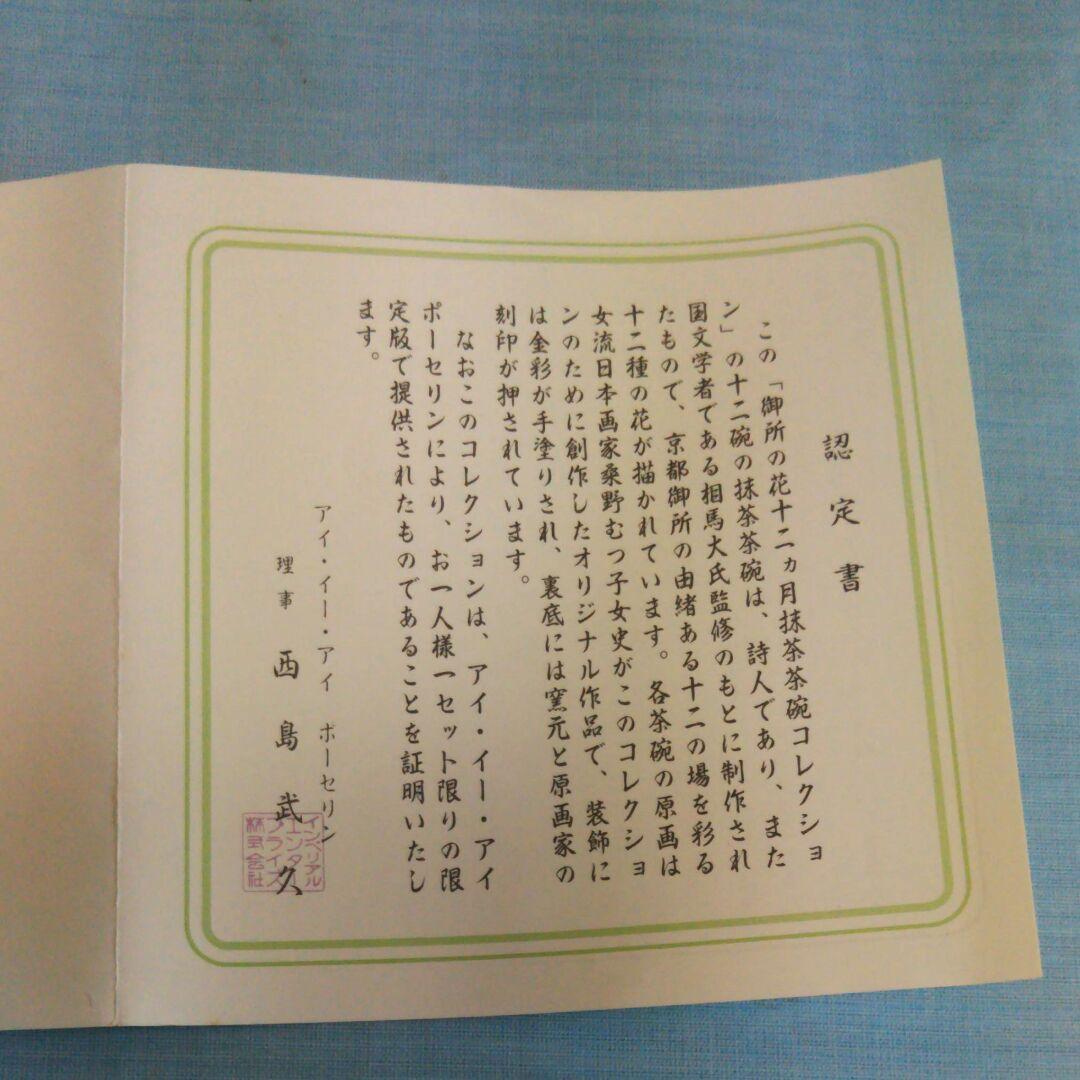 認定書
この「御所の花十二ヵ月抹茶茶碗コレクショ
ン」の十二碗の抹茶茶碗は、詩人であり、また
国文学者である相馬大氏監修のもとに制作され
たもので、京都御所の由緒ある十二の場を彩る
十二種の花が描かれています。各茶碗の原画は
女流日本画家桑野むつ子女史がこのコレクショ
ンのために創作したオリジナル作品で、装飾に
は金彩が手塗りされ、裏底には窯元と原画家の
刻印が押されています。
なおこのコレクションは、アイ・イー・アイ
ポーセリンにより、お一人様一セット限りの限
定版で提供されたものであることを証明いたし
ます。
アイ・イー・アイ ポーセリン
理事 西島武久
インペリアル
エンター
プライズ
株式会社